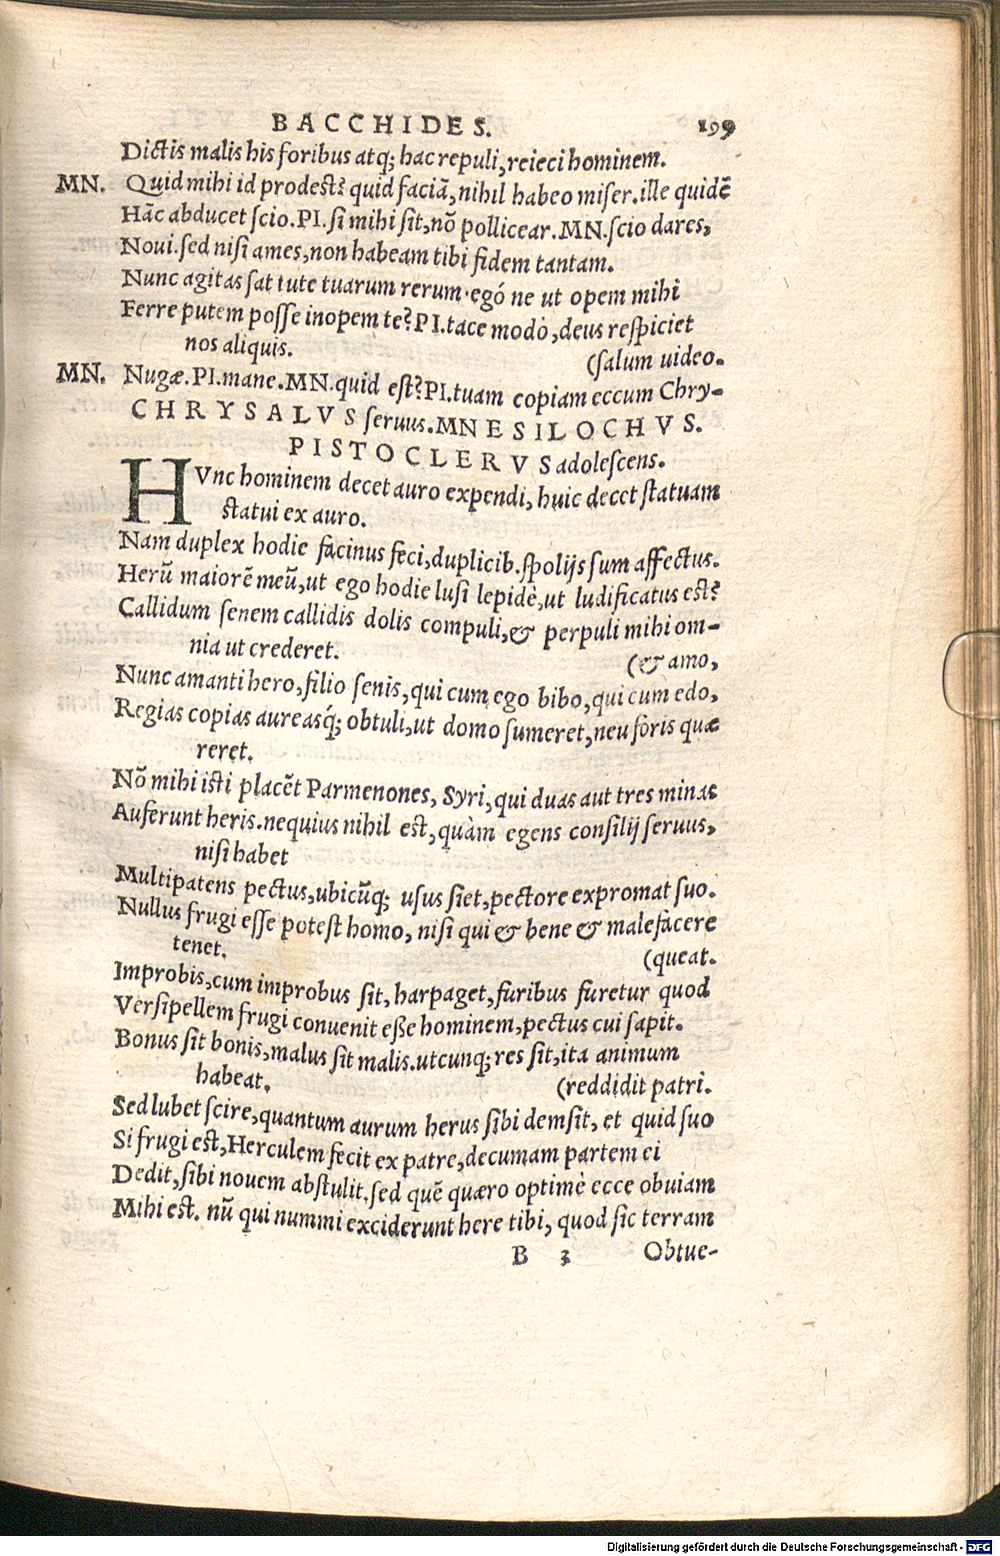 BACCHIDES. 199
Dictis malis his foribus atq; hac repuli, reieci hominem.
MN. Quid mihi id prodest? quid faciā, nihil habeo miser. ille quidē
Hāc abducet scio. PI. si mihi sit, nō pollicear. MN. scio dares,
Noui. sed nisi ames, non habeam tibi fidem tantam.
Nunc agitas sat tute tuarum rerum. egó ne ut opem mihi
Ferre putem posse inopem te? PI. tace modò, deus respiciet
nos aliquis. (salum uideo.
MN. Nugæ. PI. mane. MN. quid est? PI. tuam copiam eccum Chry-
CHRYSALVS seruus. MNESILOCHVS.
PISTOCLERVS adolescens.
HVnc hominem decet auro expendi, huic decet statuam
statui ex auro.
Nam duplex hodie facinus feci, duplicib. spolijs sum affectus.
Herū maiorē meū, ut ego hodie lusi lepidè, ut ludificatus est?
Callidum senem callidis dolis compuli, & perpuli mihi om-
nia ut crederet. (& amo,
Nunc amanti hero, filio senis, qui cum ego bibo, qui cum edo,
Regias copias aureasq́; obtuli, ut domo sumeret, neu foris quæ
reret.
Nō mihi isti placēt Parmenones, Syri, qui duas aut tres minas
Auferunt heris. nequius nihil est, quàm egens consilij seruus,
nisi habet
Multipatens pectus, ubicūq; usus siet, pectore expromat suo.
Nullus frugi esse potest homo, nisi qui & bene & malefacere
tenet. (queat.
Improbis, cum improbus sit, harpaget, furibus furetur quod
Versipellem frugi conuenit esse hominem, pectus cui sapit.
Bonus sit bonis, malus sit malis. utcunq; res sit, ita animum
habeat. (reddidit patri.
Sed lubet scire, quantum aurum herus sibi demsit, et quid suo
Si frugi est, Herculem fecit ex patre, decumam partem ei
Dedit, sibi nouem abstulit. sed quē quæro optimè ecce obuiam
Mihi est. nū qui nummi exciderunt here tibi, quod sic terram
B 3 Obtue-
Digitalisierung gefördert durch die Deutsche Forschungsgemeinschaft - DFG